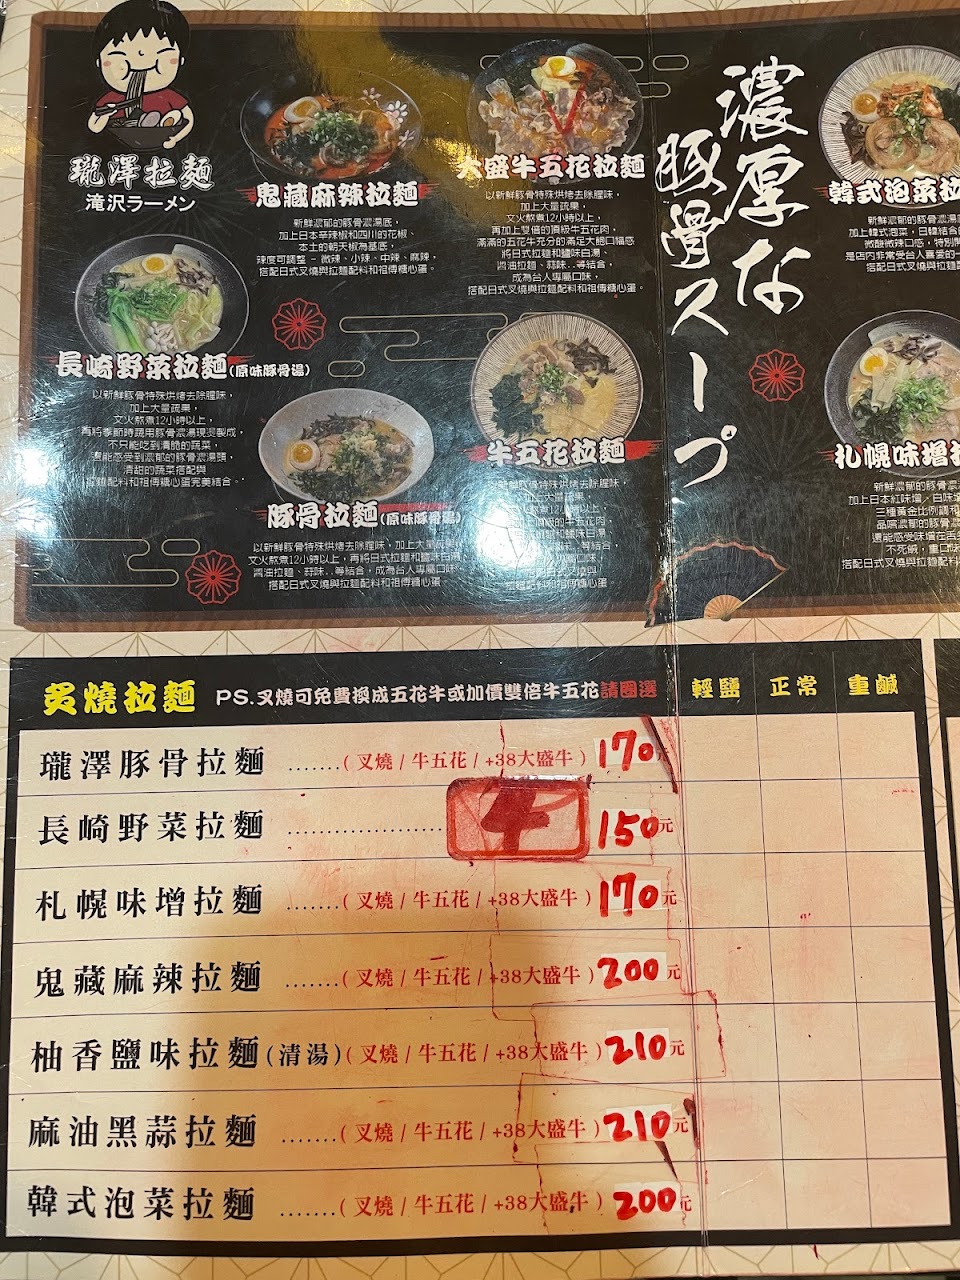 瓏澤拉麵
滝沢ラーメン
鬼藏麻辣拉麵
新鮮濃郁的豚骨濃湯底，
加上日本辛辣椒和四川的花椒、
本土的朝天椒為基底，
辣度可調整 - 微辣、小辣、中辣、麻辣，
搭配日式叉燒與拉麵配料和祖傳糖心蛋。
大盛牛五花拉麵
以新鮮豚骨特殊烘烤去除腥味，
加上大量蔬果，
文火熬煮12小時以上，
再加上雙倍的頂級牛五花肉，
滿滿的五花牛充分的滿足大飽口福感
將日式拉麵和鹽味白湯、
醬油拉麵、蒜味..等結合，
成為台人專屬口味，
搭配日式叉燒與拉麵配料和祖傳糖心蛋。
濃厚な
豚骨スープ
韓式泡菜拉
新鮮濃郁的豚骨濃湯
加上韓式泡菜，日韓結合的
微酸微辣口感，特別開
是店內非常受台人喜愛的一
搭配日式叉燒與拉麵
長崎野菜拉麵(原味豚骨湯)
以新鮮豚骨特殊烘烤去除腥味，
加上大量蔬果，
文火熬煮12小時以上，
再將季節時蔬用豚骨濃湯現燙製成，
不只能吃到清脆的蔬菜，
還能感受到濃郁的豚骨濃湯頭，
清甜的蔬菜搭配與
拉麵配料和祖傳糖心蛋完美結合。
豚骨拉麵(原味豚骨湯)
以新鮮豚骨特殊烘烤去除腥味，加上大量蔬果
文火熬煮12小時以上，再將日式拉麵和鹽味白湯
醬油拉麵、蒜味..等結合，成為台人專屬口味
搭配日式叉燒與拉麵配料和祖傳糖心蛋
牛五花拉麵
新鮮豚骨特殊烘烤去除腥味，
加上大量蔬果
文火熬煮12小時以上，
搭配日式叉燒與
拉麵配料和祖傳糖心蛋
札幌味增拉
新鮮濃郁的豚骨濃
加上日本紅味增／白味增
三種黃金比例調和
品嚐濃郁的豚骨濃
還能感受味增在舌
不死鹹，重口味
搭配日式叉燒與拉麵
炙燒拉麵 PS.叉燒可免費換成五花牛或加價雙倍牛五花請圈選 輕鹽 正常 重鹹
瓏澤豚骨拉麵 .......( 叉燒 / 牛五花 / +38大盛牛 ) 170元
長崎野菜拉麵 ...................... 牛 150元
札幌味增拉麵 .......( 叉燒 / 牛五花 / +38大盛牛 ) 170元
鬼藏麻辣拉麵 .......( 叉燒 / 牛五花 / +38大盛牛 ) 200元
柚香鹽味拉麵(清湯)( 叉燒 / 牛五花 / +38大盛牛 ) 210元
麻油黑蒜拉麵 .......( 叉燒 / 牛五花 / +38大盛牛 ) 210元
韓式泡菜拉麵 .......( 叉燒 / 牛五花 / +38大盛牛 ) 200元